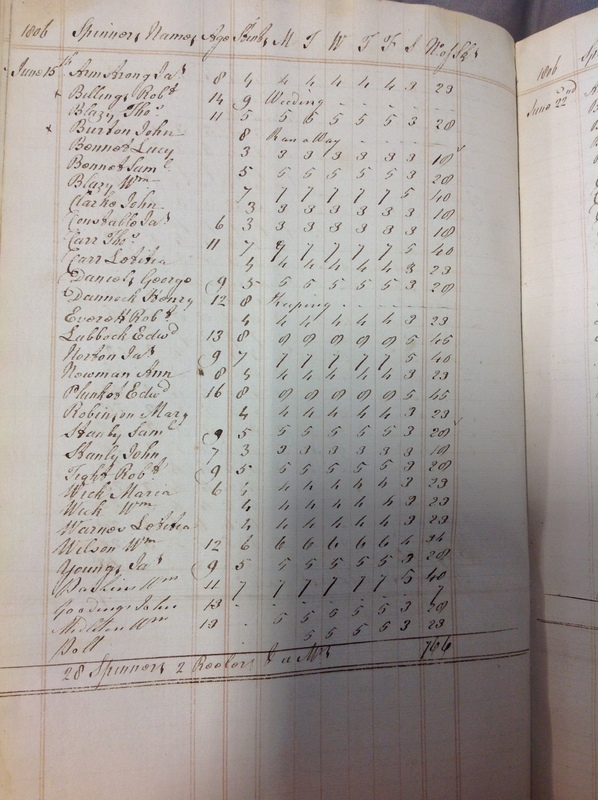 1806 Spinners Names Age Stint M T W T F S No of Sks
June 15th Armstrong Jas 8 4 4 4 4 4 4 3 23
x Billings Robt 14 9 Weeding - - - -
Blazy Thos 11 5 5 5 5 5 5 3 28
x Burton John 8 Run a Way - - -
Bennet Lucy 3 3 3 3 3 3 3 18
Bennet Saml 5 5 5 5 5 5 3 28
Blazy Wm 7 7 7 7 7 7 5 40
Clarke John 3 3 3 3 3 3 3 18
Constable Jas 6 3 3 3 3 3 3 3 18
Carr Thos 11 7 7 7 7 7 7 5 40
Carr Letitia 4 4 4 4 4 4 3 23
Daniels George 9 5 5 5 5 5 5 3 28
Dannock Henry 12 8 Keeping - - - -
Everett Robt 4 4 4 4 4 4 3 23
Lubbock Edwd 13 8 8 8 8 8 8 5 45
Norton Jas 9 7 7 7 7 7 7 5 40
Newman Ann 8 4 4 4 4 4 4 3 23
Plunket Edwd 16 8 8 8 8 8 8 5 45
Robinson Mary 4 4 4 4 4 4 3 23
Stanby Saml 9 5 5 5 5 5 5 3 28
Stanly John 7 3 3 3 3 3 3 3 18
Tight Robt 9 5 5 5 5 5 5 3 28
Wick Maria 6 4 4 4 4 4 4 3 23
Wick Wm 4 4 4 4 4 4 3 23
Warnes Letitia 4 4 4 4 4 4 3 23
Wilson Wm 12 6 6 6 6 6 6 4 34
Youngs Jas 9 5 5 5 5 5 5 3 28
Wm 11 7 7 7 7 7 7 5 40
Goodings John 13 - - - - - - - 7
Wm 13 - 5 5 5 5 5 3 28
Poll 5 5 5 5 3 23
28 Spinners 2 Reelers & a Mrs 766
1806 Sp
June 22nd